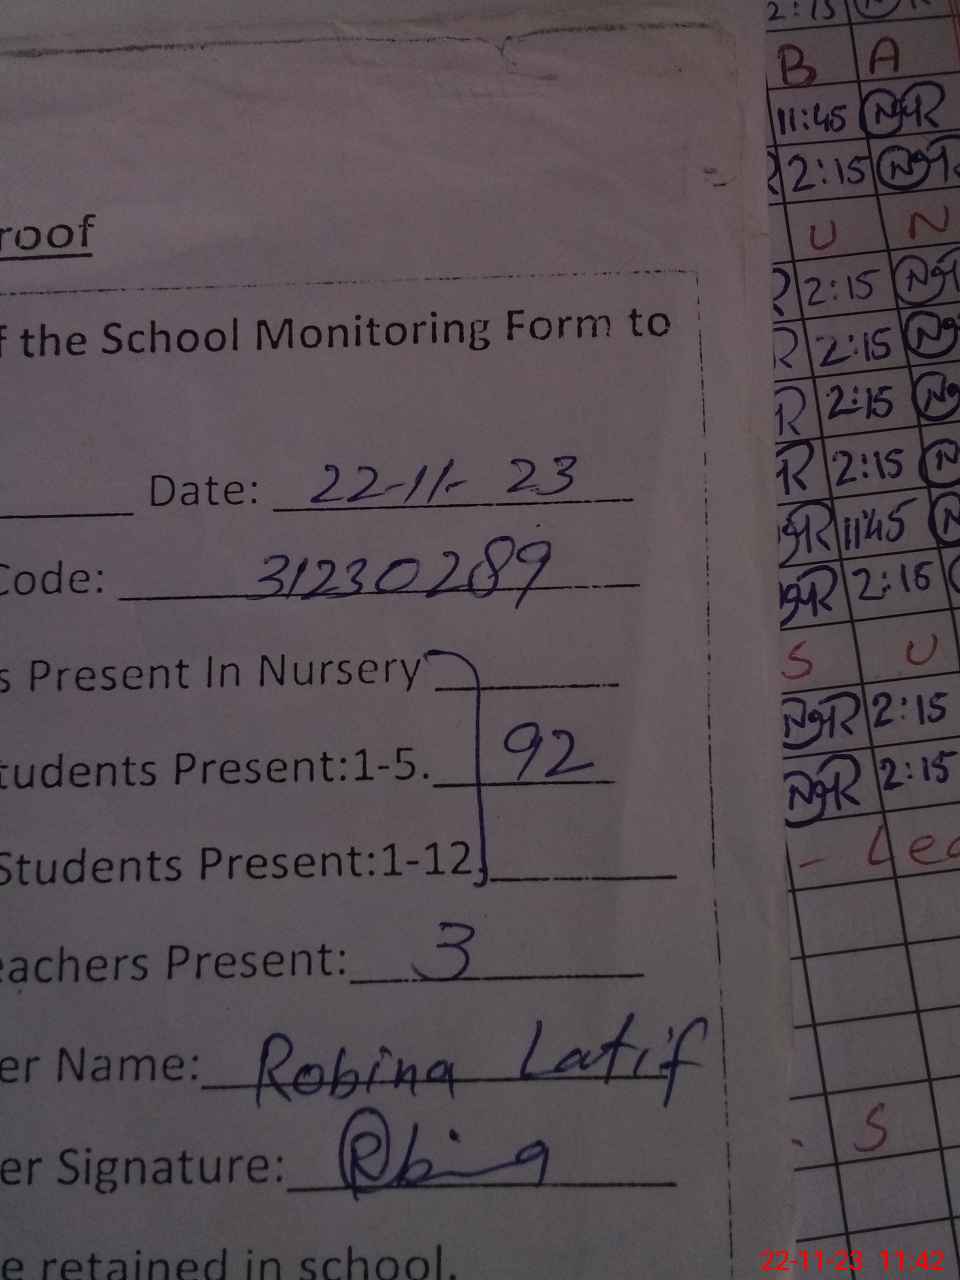 roof
f the School Monitoring Form to
Date: 22-11- 23
Code: 31230289
s Present In Nursery
tudents Present:1-5. 92
Students Present:1-12,
eachers Present: 3
er Name: Robina Latif
er Signature: Rbina
e retained in school.
2:15
B A
11:45 NgR
2:15
U N
R 2:15
R 2:15
R 2:15
R 2:15
gR 11:45
gR 2:15
S U
NgR 2:15
NgR 2:15
- Lea
S
22-11-23 11:42